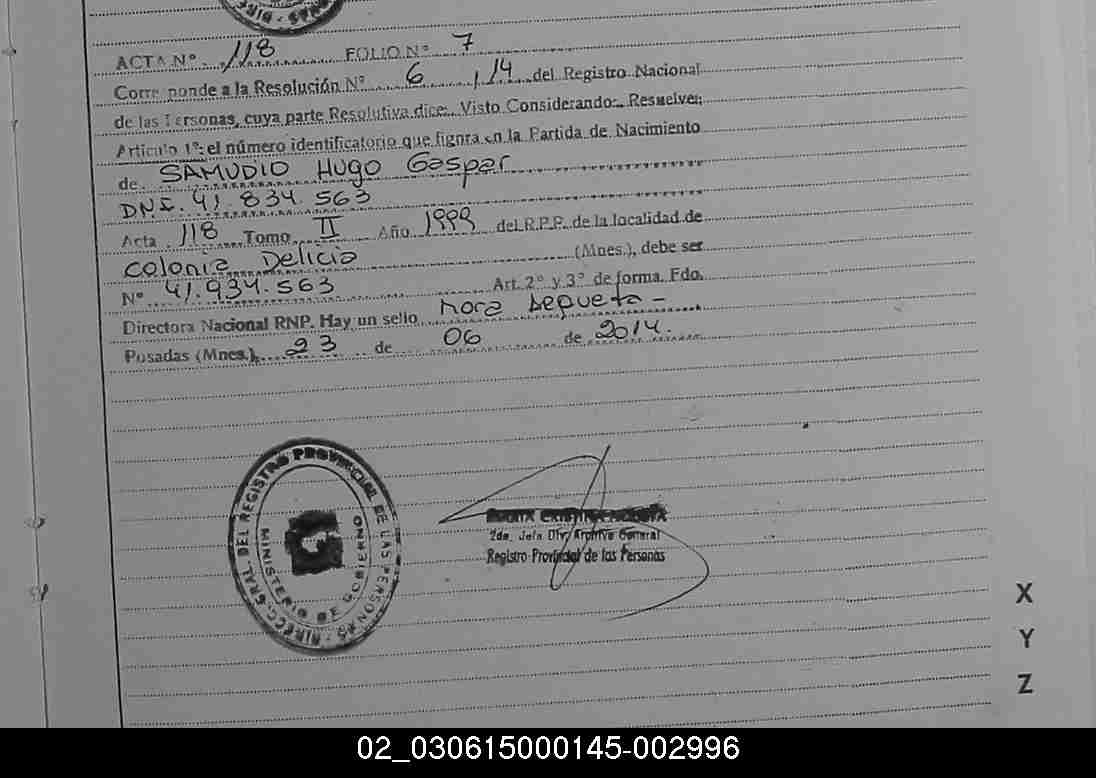 ACTA Nº 118 FOLIO Nº 7
Corresponde a la Resolución Nº 6 /14 del Registro Nacional
de las Personas, cuya parte Resolutiva dice: Visto Considerando: Resuelve:
Artículo 1º: el número identificatorio que figura en la Partida de Nacimiento
de SAMUDIO HUGO Gaspar
DNI. 41.834.563
Acta 118 Tomo II Año 1999 del R.P.P. de la localidad de
Colonia Delicia (Mnes.), debe ser
Nº 41.934.563 Art. 2º y 3º de forma. Fdo.
Directora Nacional RNP. Hay un sello Nora Sequeta -
Posadas (Mnes.), 23 de 06 de 2014.
DIRECC. GRAL. DEL REGISTRO PROVINCIAL DE LAS PERSONAS
MINISTERIO DE GOBIERNO
2da. Jefa Div. Archivo General
Registro Provincial de las Personas
X
Y
Z
02_030615000145-002996